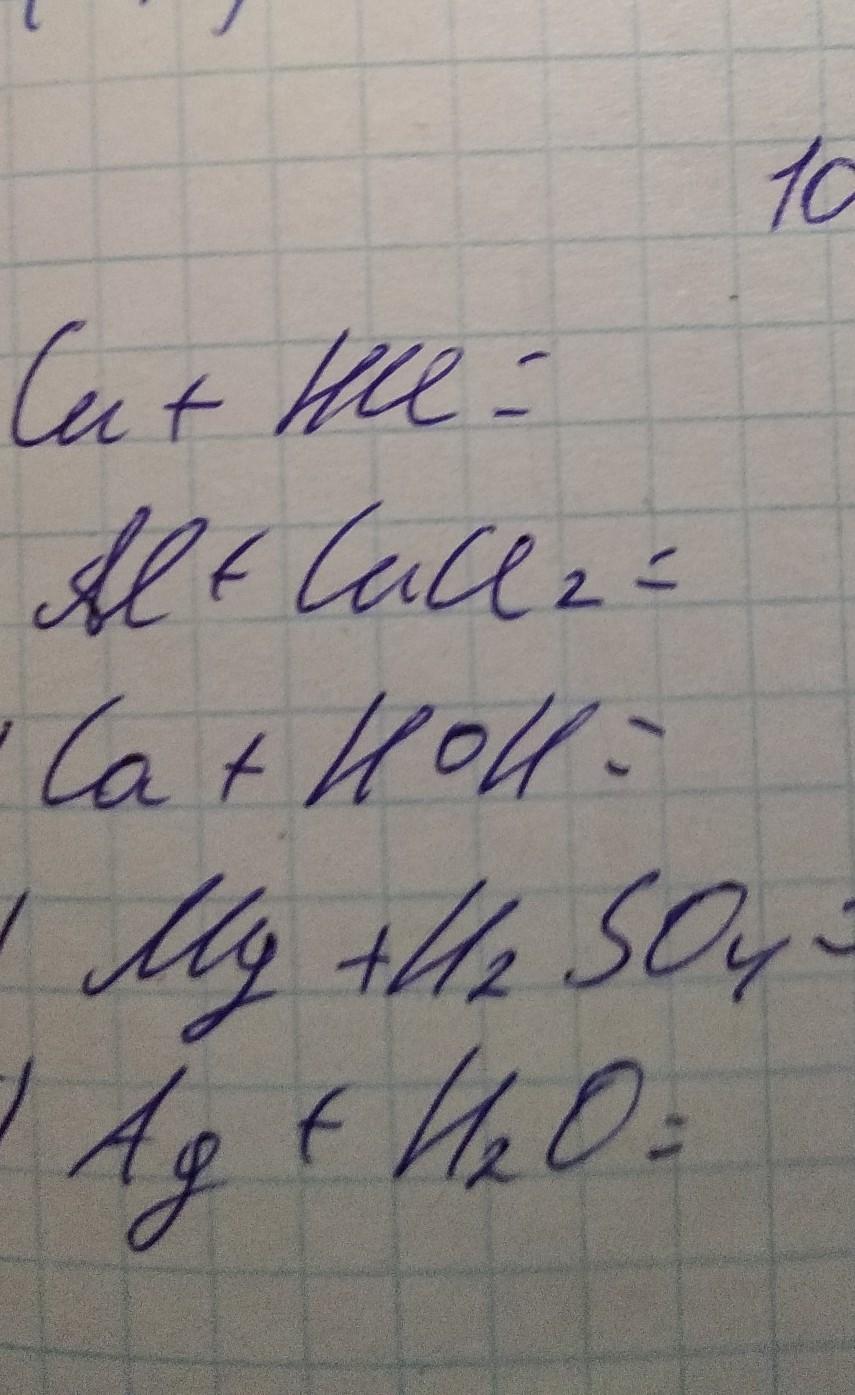 10
Cu + HCl =
Al + CuCl₂ =
Ca + HOH =
) Mg + H₂SO₄ =
) Ag + H₂O =